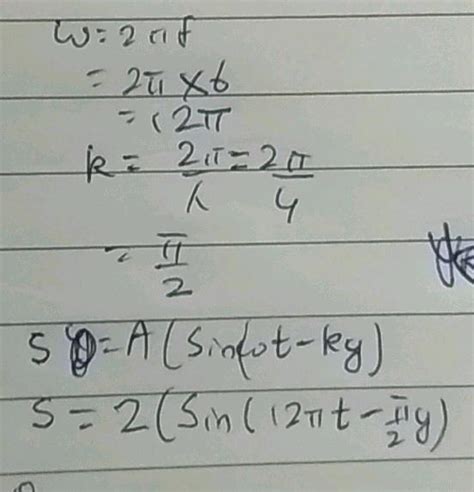 w = 2πf
= 2π × 6
= 12π
k = 2π/λ = 2π/4
= π/2
S = A(Sin(ωt - ky)
S = 2(Sin(12πt - π/2 y)